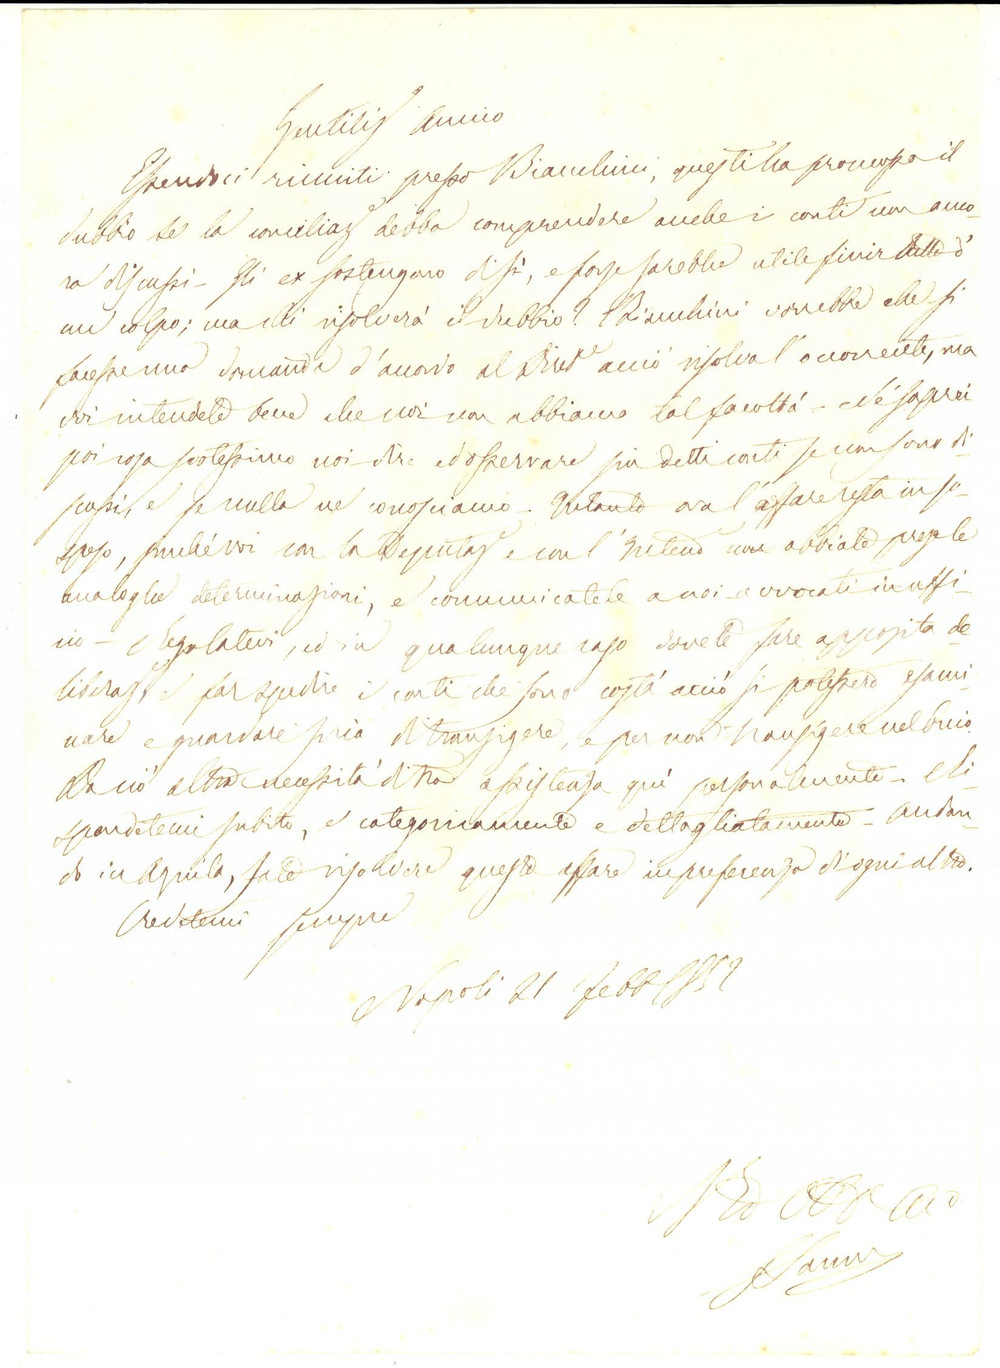 Gentilis.o Amico
Essendoci riuniti presso Bianchini, questi ha promosso il
dubbio se la conciliaz.e debba comprendere anche i conti non anco-
ra discussi - Gli ex sostengono di sì, e forse sarebbe utile finir tutto d'
un colpo; ma chi risolverà il dubbio? Bianchini vorrebbe che si
facesse una domanda d'accordo al acciò risolva l'occorrente, ma
voi intendete bene che noi non abbiamo tal facoltà - Né saprei
poi cosa potessimo noi dire ed osservare su detti conti se non sono di-
scussi, e se nulla ne conosciamo - Intanto ora l'affare resta in so-
speso, finché voi con la Deputaz.e e con l'Intend.e non abbiate prese le
analoghe determinazioni, e comunicatele a noi avvocati in uffi-
cio - Regolatevi, ed in qualunque caso dovete fare apposita de-
liberaz.e e far spedire i conti che sono costà acciò si potessero esami-
nare e guardare pria di transigere, e per non transigere nel buio
Da ciò altra necessità di tua assistenza quì personalmente - Ri-
spondetemi subito, e categoricamente e dettagliatamente - Andan-
do in Aquila, fate risolvere questo affare in preferenza di ogni altro.
Credetemi sempre
Napoli 21 Febb.o 1852